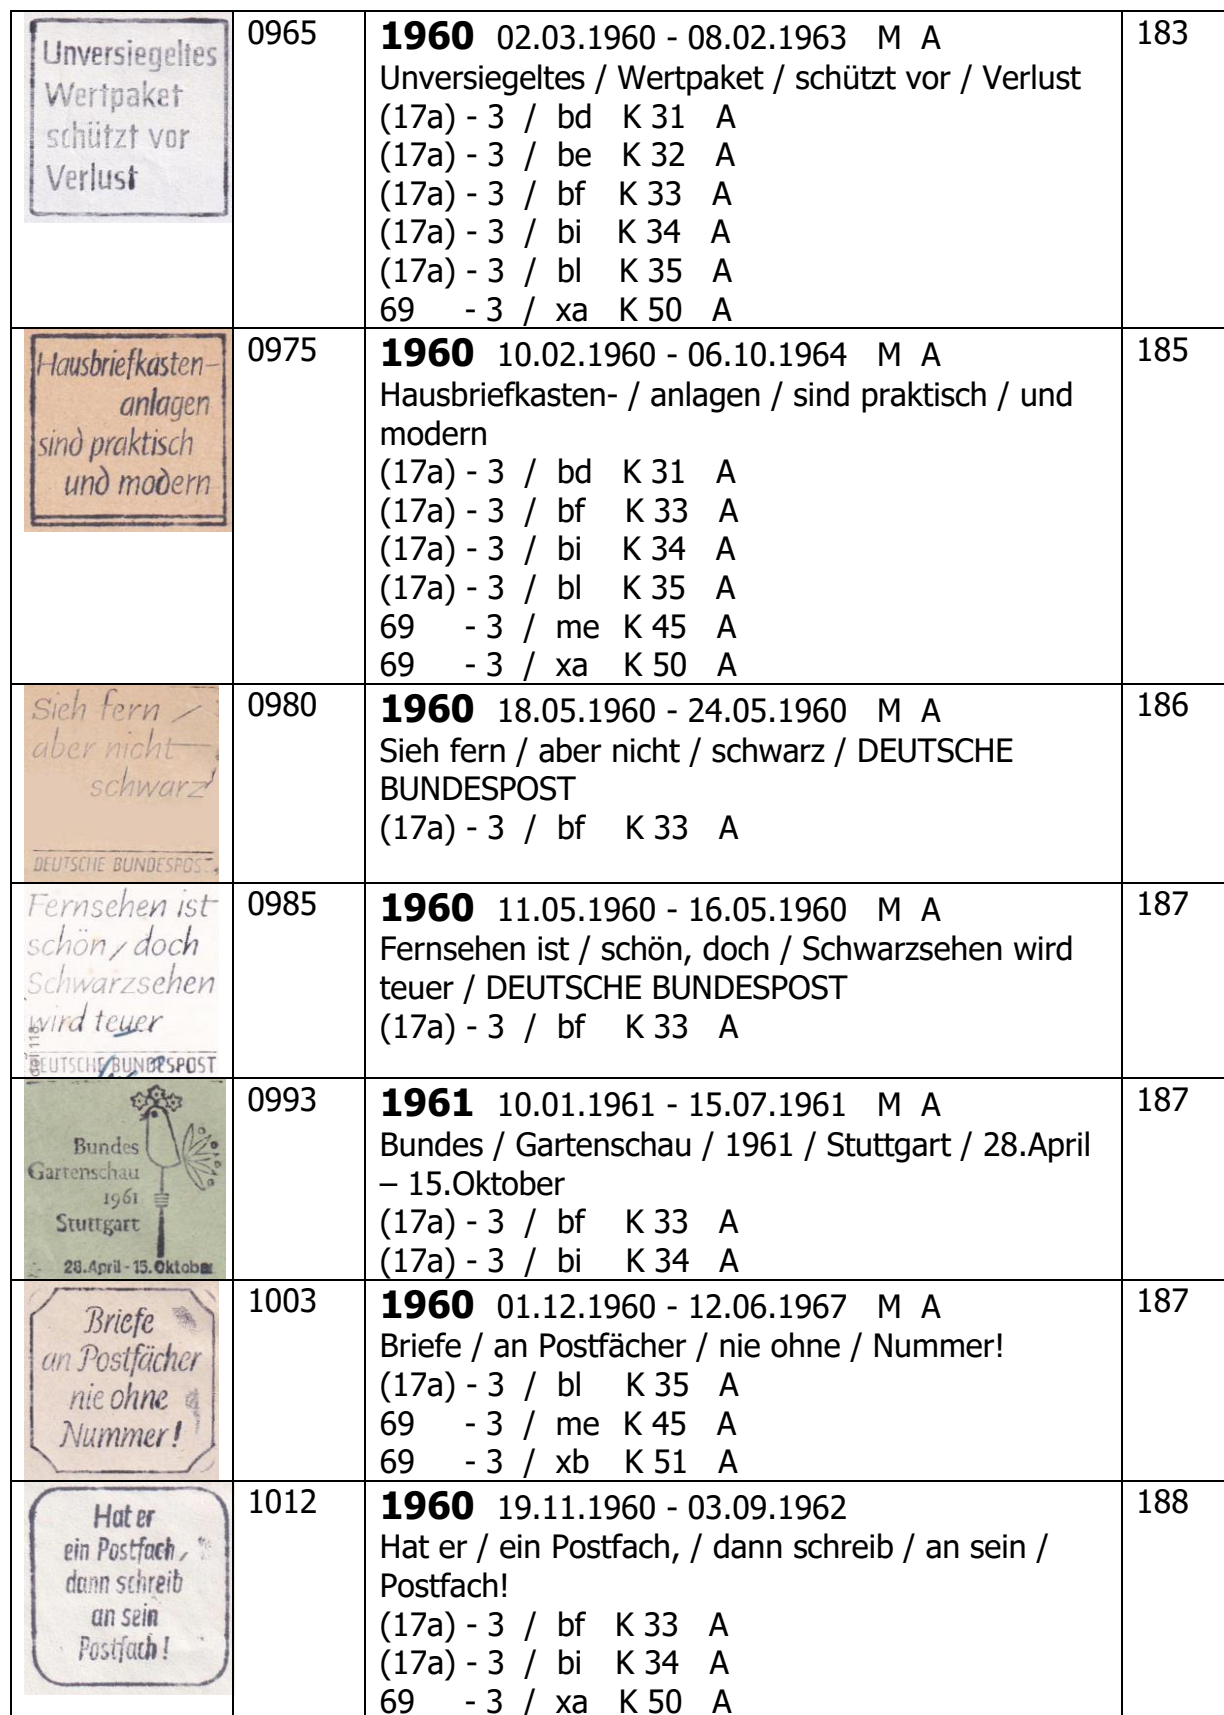 Unversiegeltes
Wertpaket
schützt vor
Verlust
0965
1960 02.03.1960 - 08.02.1963 M A
Unversiegeltes / Wertpaket / schützt vor / Verlust
(17a) - 3 / bd K 31 A
(17a) - 3 / be K 32 A
(17a) - 3 / bf K 33 A
(17a) - 3 / bi K 34 A
(17a) - 3 / bl K 35 A
69 - 3 / xa K 50 A
183
Hausbriefkasten-
anlagen
sind praktisch
und modern
0975
1960 10.02.1960 - 06.10.1964 M A
Hausbriefkasten- / anlagen / sind praktisch / und
modern
(17a) - 3 / bd K 31 A
(17a) - 3 / bf K 33 A
(17a) - 3 / bi K 34 A
(17a) - 3 / bl K 35 A
69 - 3 / me K 45 A
69 - 3 / xa K 50 A
185
Sieh fern /
aber nicht
schwarz!
DEUTSCHE BUNDESPOST
0980
1960 18.05.1960 - 24.05.1960 M A
Sieh fern / aber nicht / schwarz / DEUTSCHE
BUNDESPOST
(17a) - 3 / bf K 33 A
186
Fernsehen ist
schön, doch
Schwarzsehen
wird teuer
DEUTSCHE BUNDESPOST
0985
1960 11.05.1960 - 16.05.1960 M A
Fernsehen ist / schön, doch / Schwarzsehen wird
teuer / DEUTSCHE BUNDESPOST
(17a) - 3 / bf K 33 A
187
Bundes
Gartenschau
1961
Stuttgart
28.April - 15.Oktober
0993
1961 10.01.1961 - 15.07.1961 M A
Bundes / Gartenschau / 1961 / Stuttgart / 28.April
– 15.Oktober
(17a) - 3 / bf K 33 A
(17a) - 3 / bi K 34 A
187
Briefe
an Postfächer
nie ohne
Nummer!
1003
1960 01.12.1960 - 12.06.1967 M A
Briefe / an Postfächer / nie ohne / Nummer!
(17a) - 3 / bl K 35 A
69 - 3 / me K 45 A
69 - 3 / xb K 51 A
187
Hat er
ein Postfach,
dann schreib
an sein
Postfach!
1012
1960 19.11.1960 - 03.09.1962
Hat er / ein Postfach, / dann schreib / an sein /
Postfach!
(17a) - 3 / bf K 33 A
(17a) - 3 / bi K 34 A
69 - 3 / xa K 50 A
188